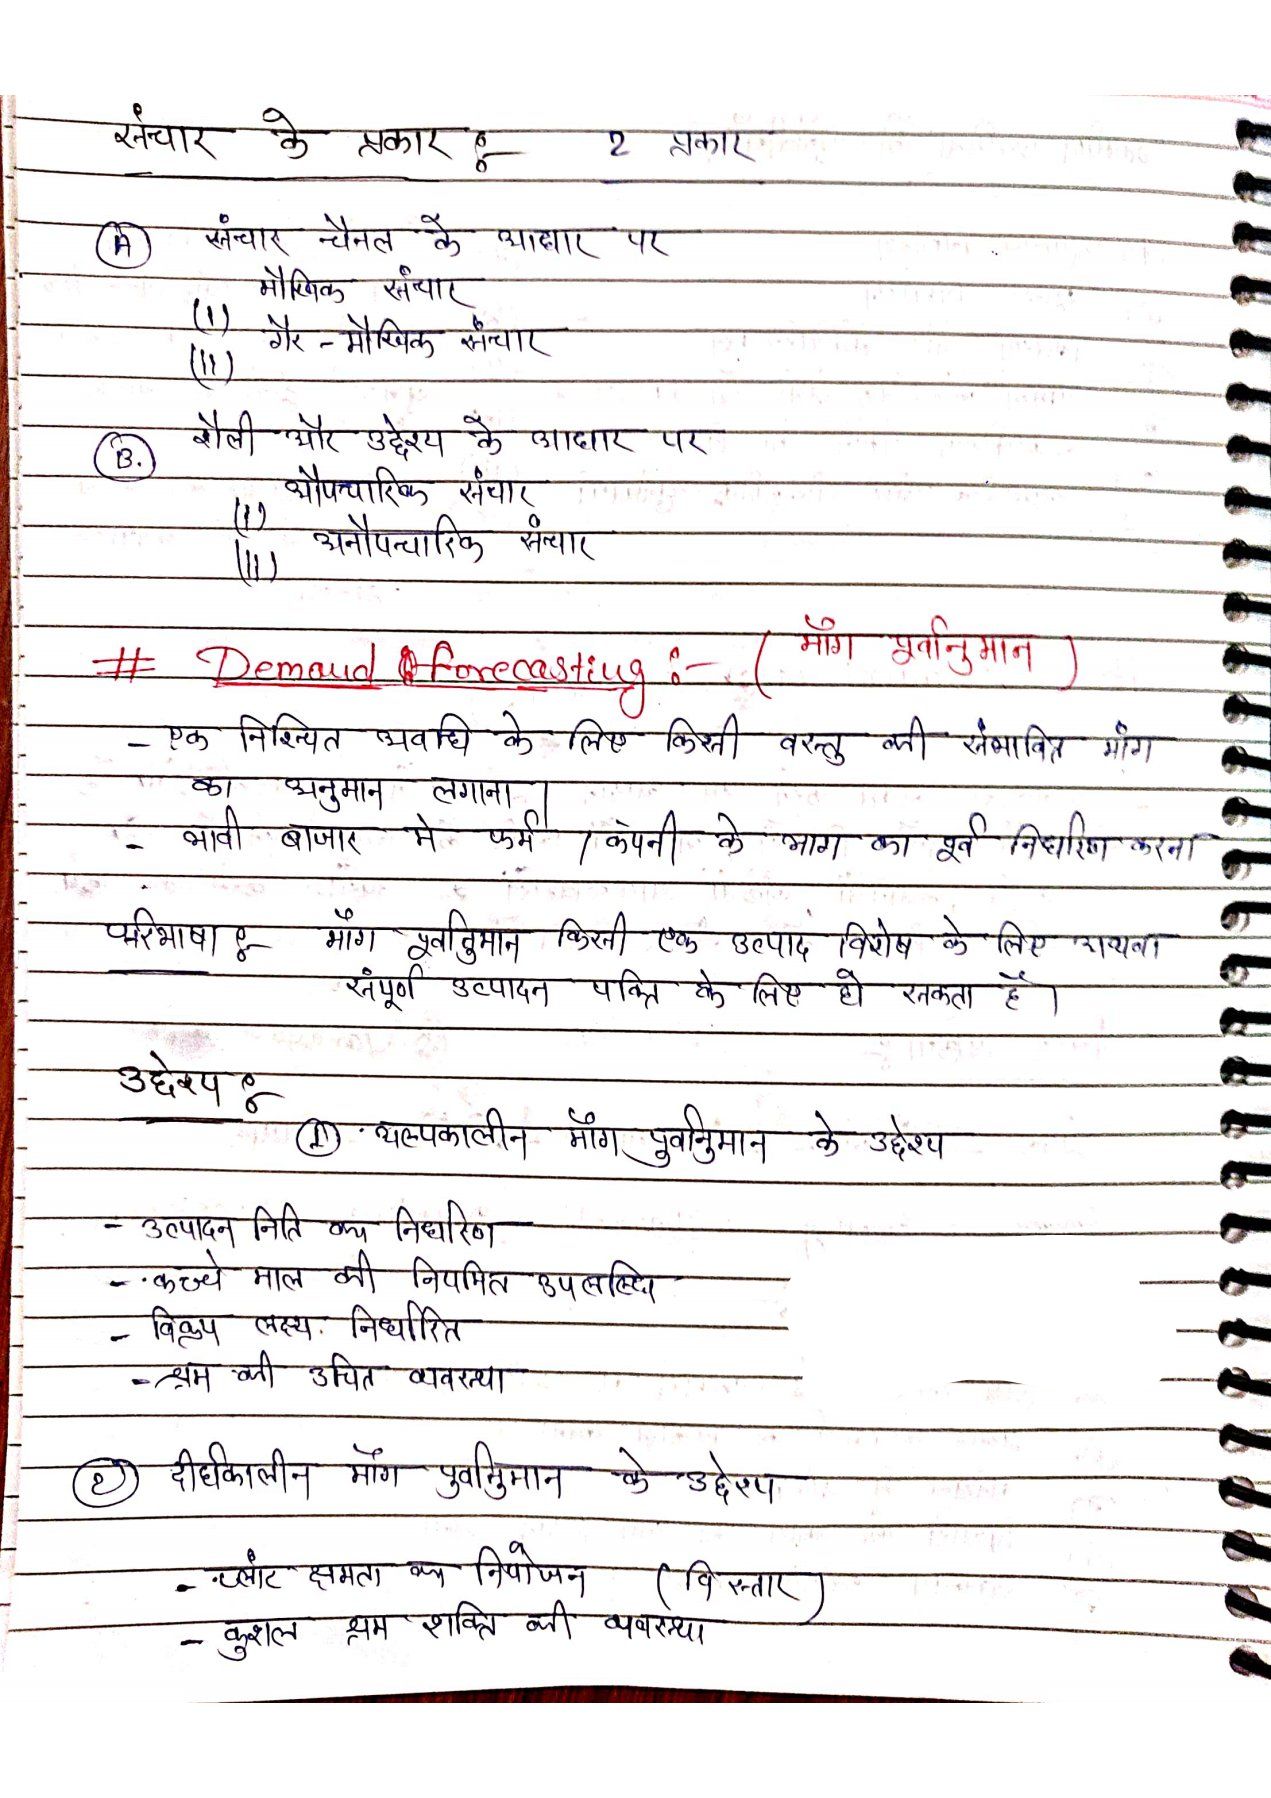 संचार के प्रकार :- 2 प्रकार
(A) संचार चैनल के आधार पर
(I) मौखिक संचार
(II) गैर - मौखिक संचार
(B.) शैली और उद्देश्य के आधार पर
(I) औपचारिक संचार
(II) अनौपचारिक संचार
# Demand forecasting :- (माँग पूर्वानुमान)
- एक निश्चित अवधि के लिए किसी वस्तु की संभावित माँग
का अनुमान लगाना।
- भावी बाजार मे फर्म / कंपनी के भाग का पूर्व निर्धारण करना
परिभाषा :- माँग पूर्वानुमान किसी एक उत्पाद विशेष के लिए अथवा
संपूर्ण उत्पादन पंक्ति के लिए हो सकता है।
उद्देश्य :-
(1) अल्पकालीन माँग पुर्वानुमान के उद्देश्य
- उत्पादन निति का निर्धारण
- कच्चे माल की नियमित उपलब्धि
- विक्रय लक्ष्य निर्धारित
- श्रम की उचित व्यवस्था
(2) दीर्घकालीन माँग पुर्वानुमान के उद्देश्य
- प्लांट क्षमता का नियोजन (विस्तार)
- कुशल श्रम शक्ति की व्यवस्था